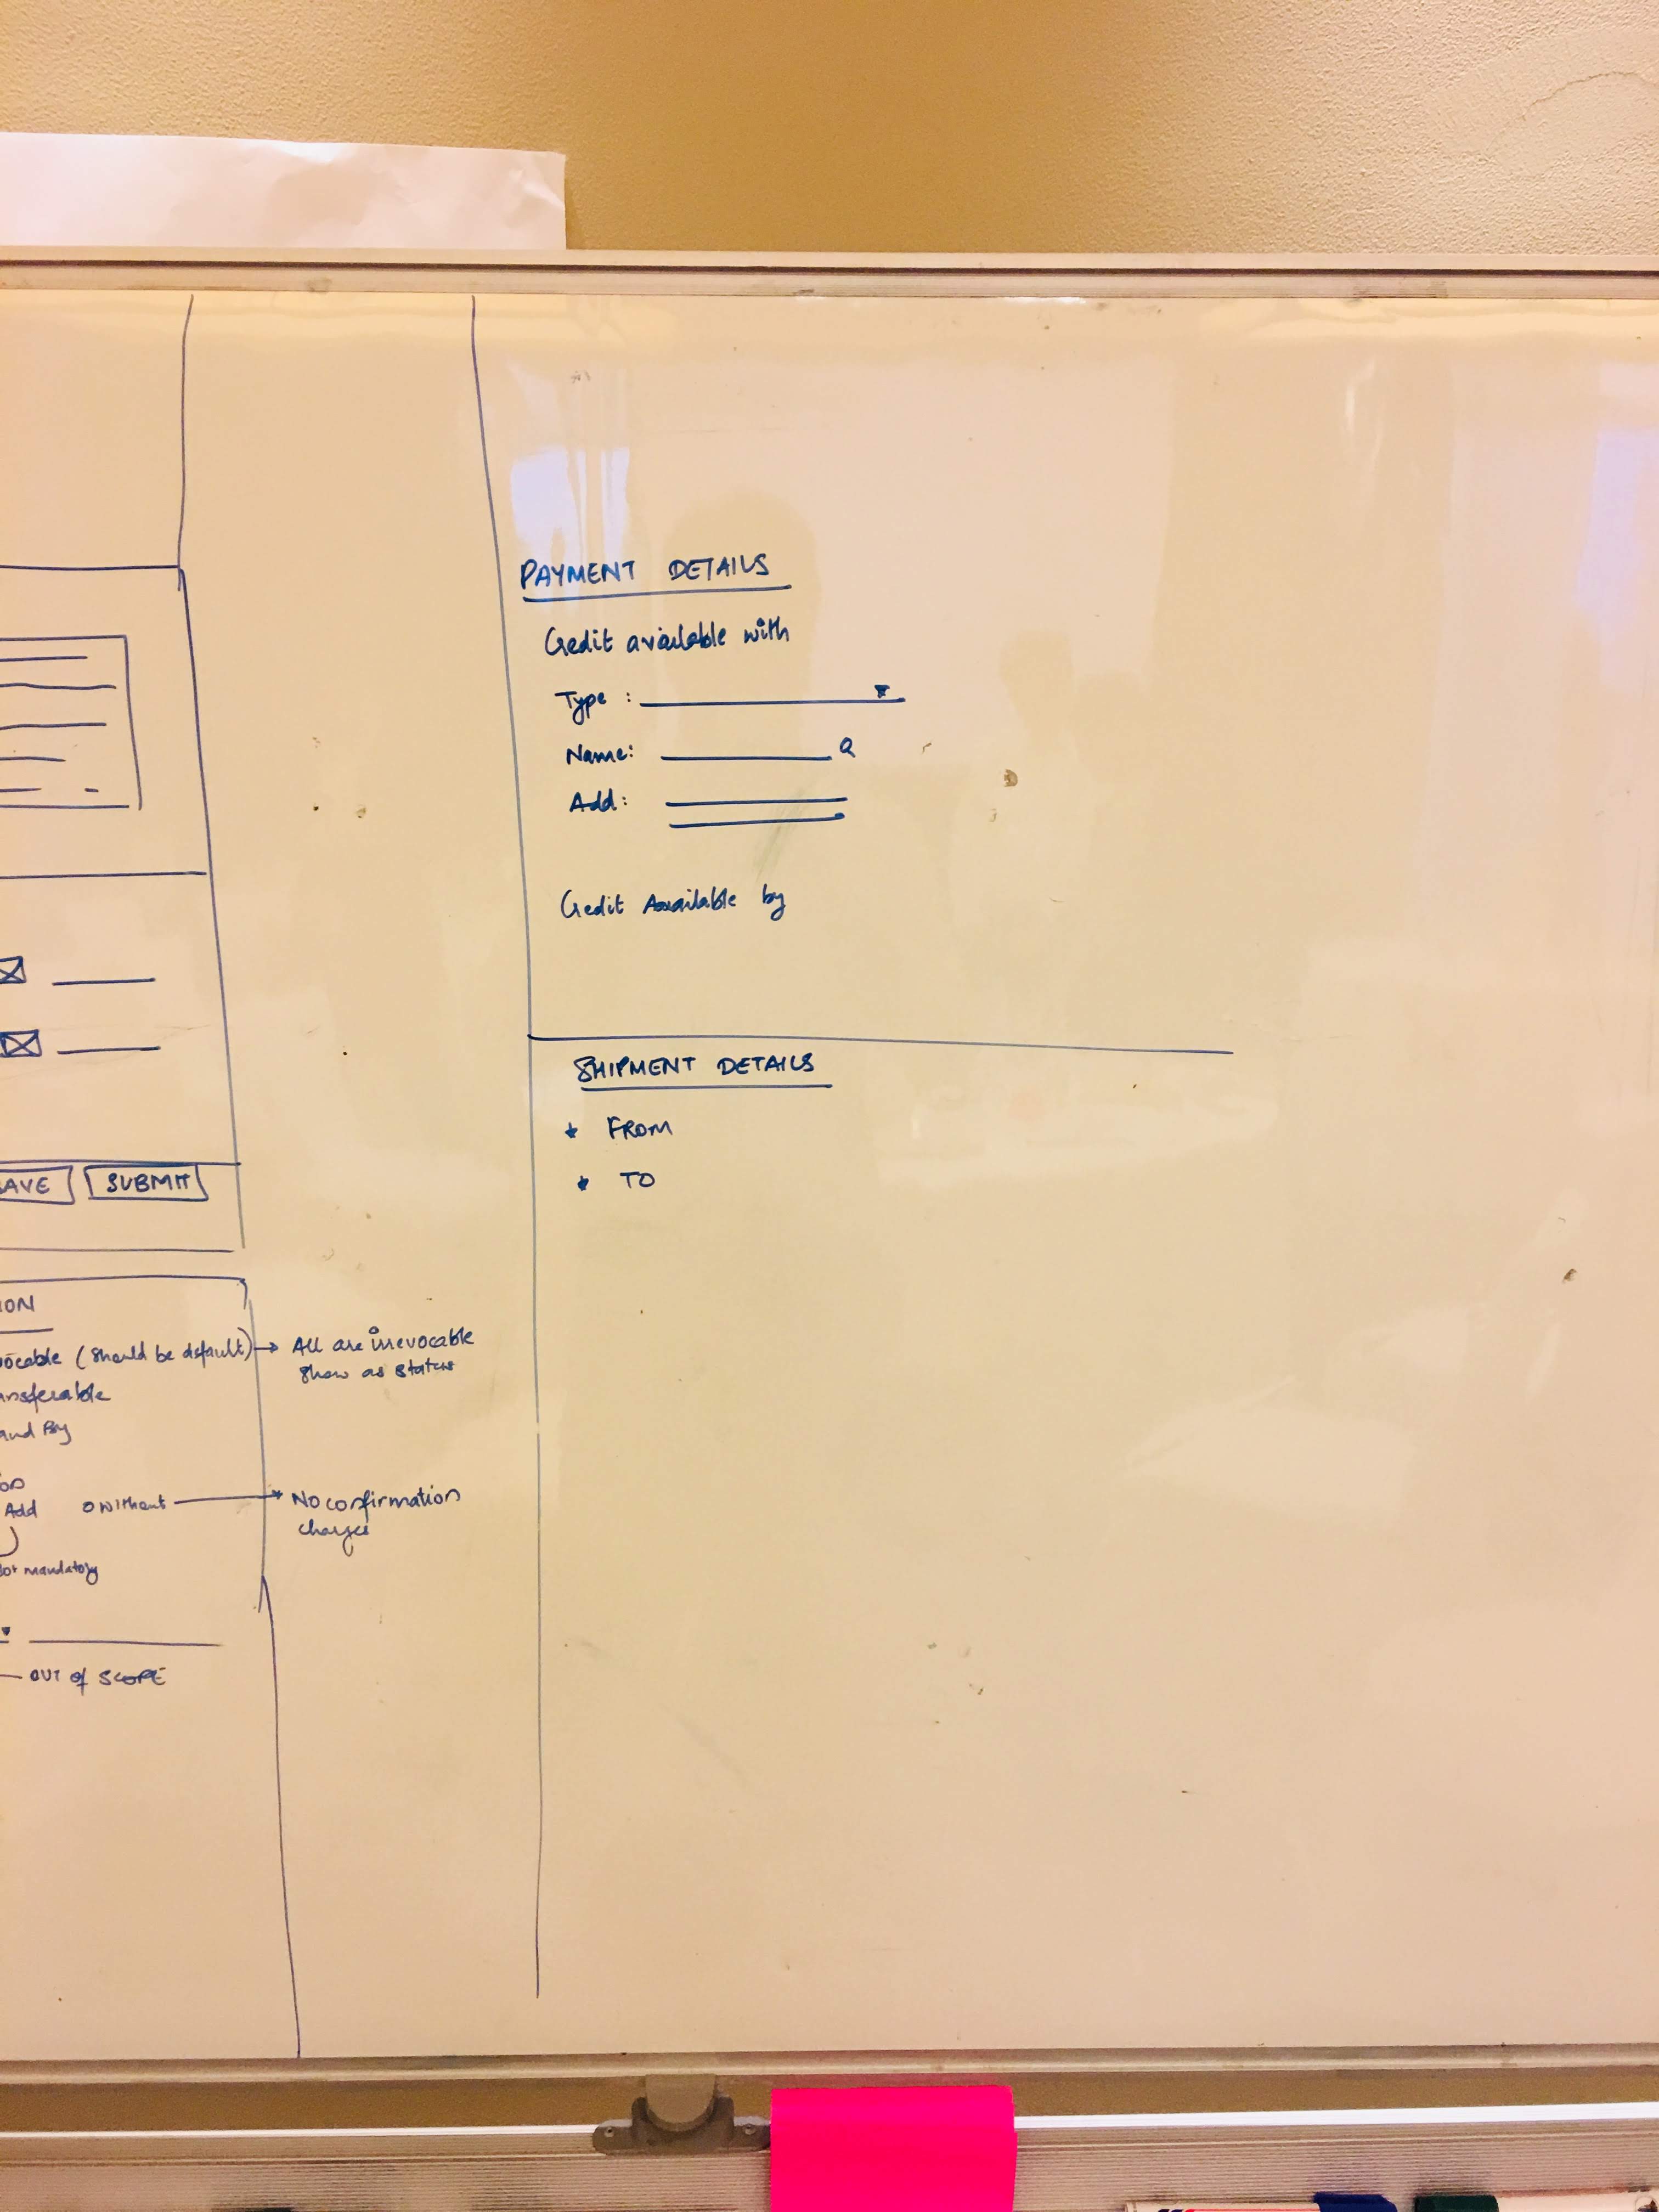 SUBMIT
(Should be default)
All are irrevocable
Show as status
and By
Add o without
No confirmation
charges
mandatory
OUT of SCOPE
PAYMENT DETAILS
Credit available with
Type :
Name:
Add:
Credit Available by
SHIPMENT DETAILS
* FROM
* TO